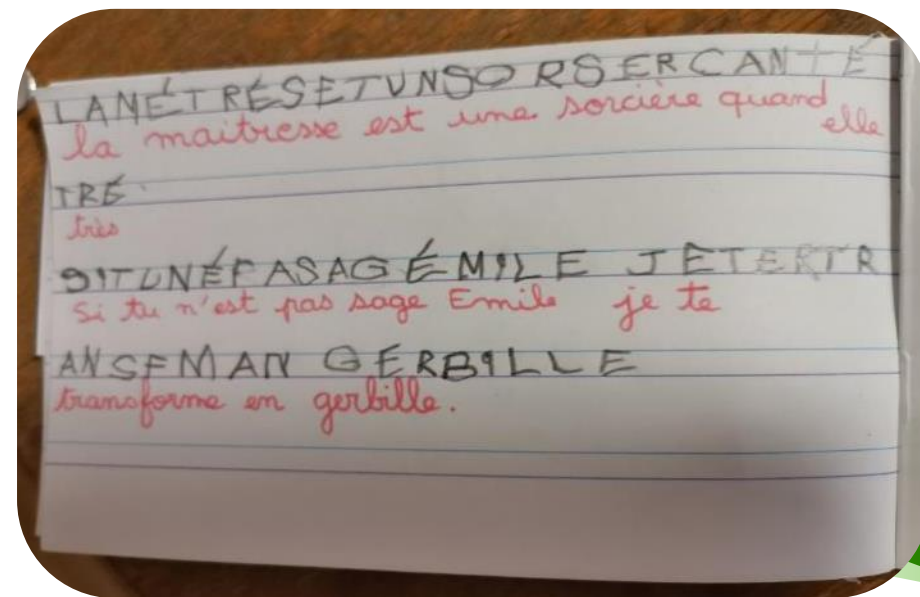 LANÉTRÉSETUNSORSERCANTÉ
la maitresse est une sorcière quand elle
TRÉ
très
SITUNÉPASAGÉMILE JETERTR
Si tu n'est pas sage Emile je te
ANSFMAN GERBILLE
transforme en gerbille.